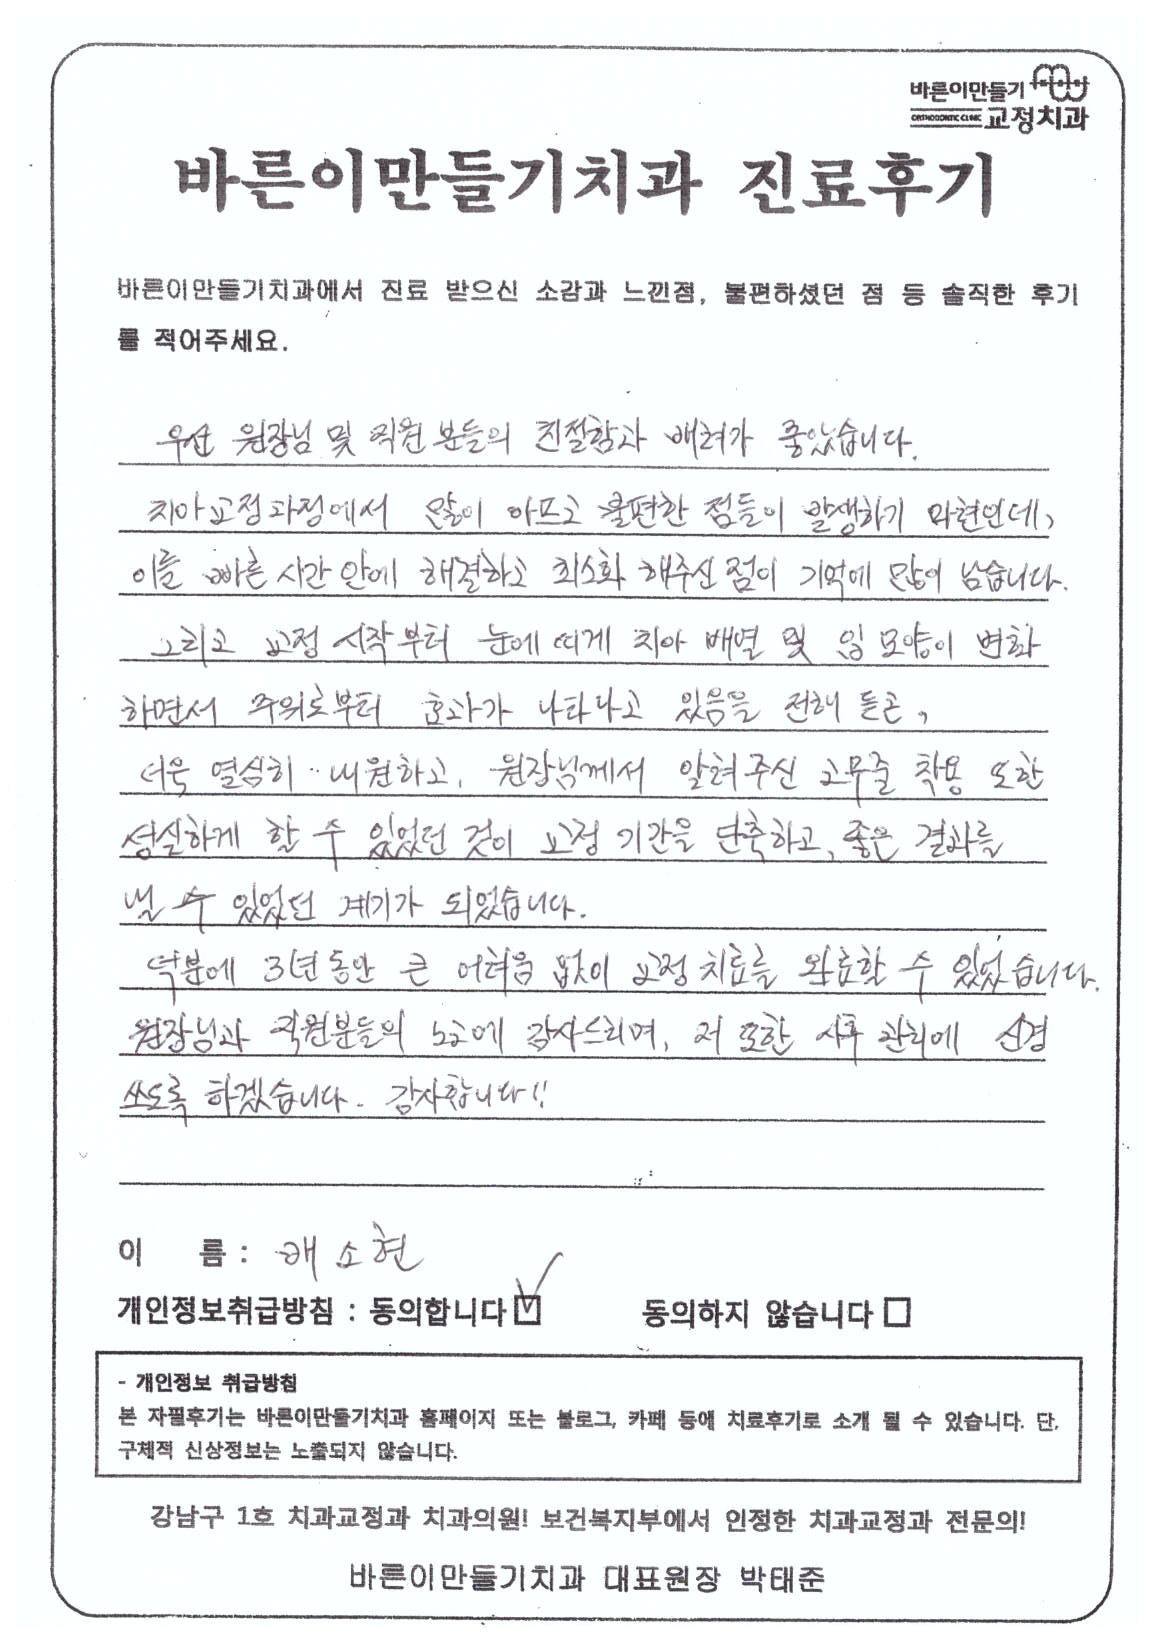 바른이만들기
ORTHODONTIC CLINIC 교정치과
바른이만들기치과 진료후기
바른이만들기치과에서 진료 받으신 소감과 느낀점, 불편하셨던 점 등 솔직한 후기
를 적어주세요.
우선 원장님 및 직원 분들의 친절함과 배려가 좋았습니다.
치아교정과정에서 많이 아프고 불편한 점들이 발생하기 마련인데,
이를 빠른 시간 안에 해결하고 최소화 해주신 점이 기억에 많이 남습니다.
그리고 교정 시작부터 눈에 띄게 치아 배열 및 입 모양이 변화
하면서 주위로부터 효과가 나타나고 있음을 전해 듣곤,
더욱 열심히 내원하고, 원장님께서 알려주신 고무줄 착용 또한
성실하게 할 수 있었던 것이 교정 기간을 단축하고, 좋은 결과를
낼 수 있었던 계기가 되었습니다.
덕분에 3년 동안 큰 어려움 없이 교정 치료를 완료할 수 있었습니다.
원장님과 직원분들의 노고에 감사드리며, 저 또한 사후 관리에 신경
쓰도록 하겠습니다. 감사합니다!!
이 름 : 배소현
개인정보취급방침 : 동의합니다 ☑ 동의하지 않습니다 □
- 개인정보 취급방침
본 자필후기는 바른이만들기치과 홈페이지 또는 블로그, 카페 등에 치료후기로 소개 될 수 있습니다. 단,
구체적 신상정보는 노출되지 않습니다.
강남구 1호 치과교정과 치과의원! 보건복지부에서 인정한 치과교정과 전문의!
바른이만들기치과 대표원장 박태준